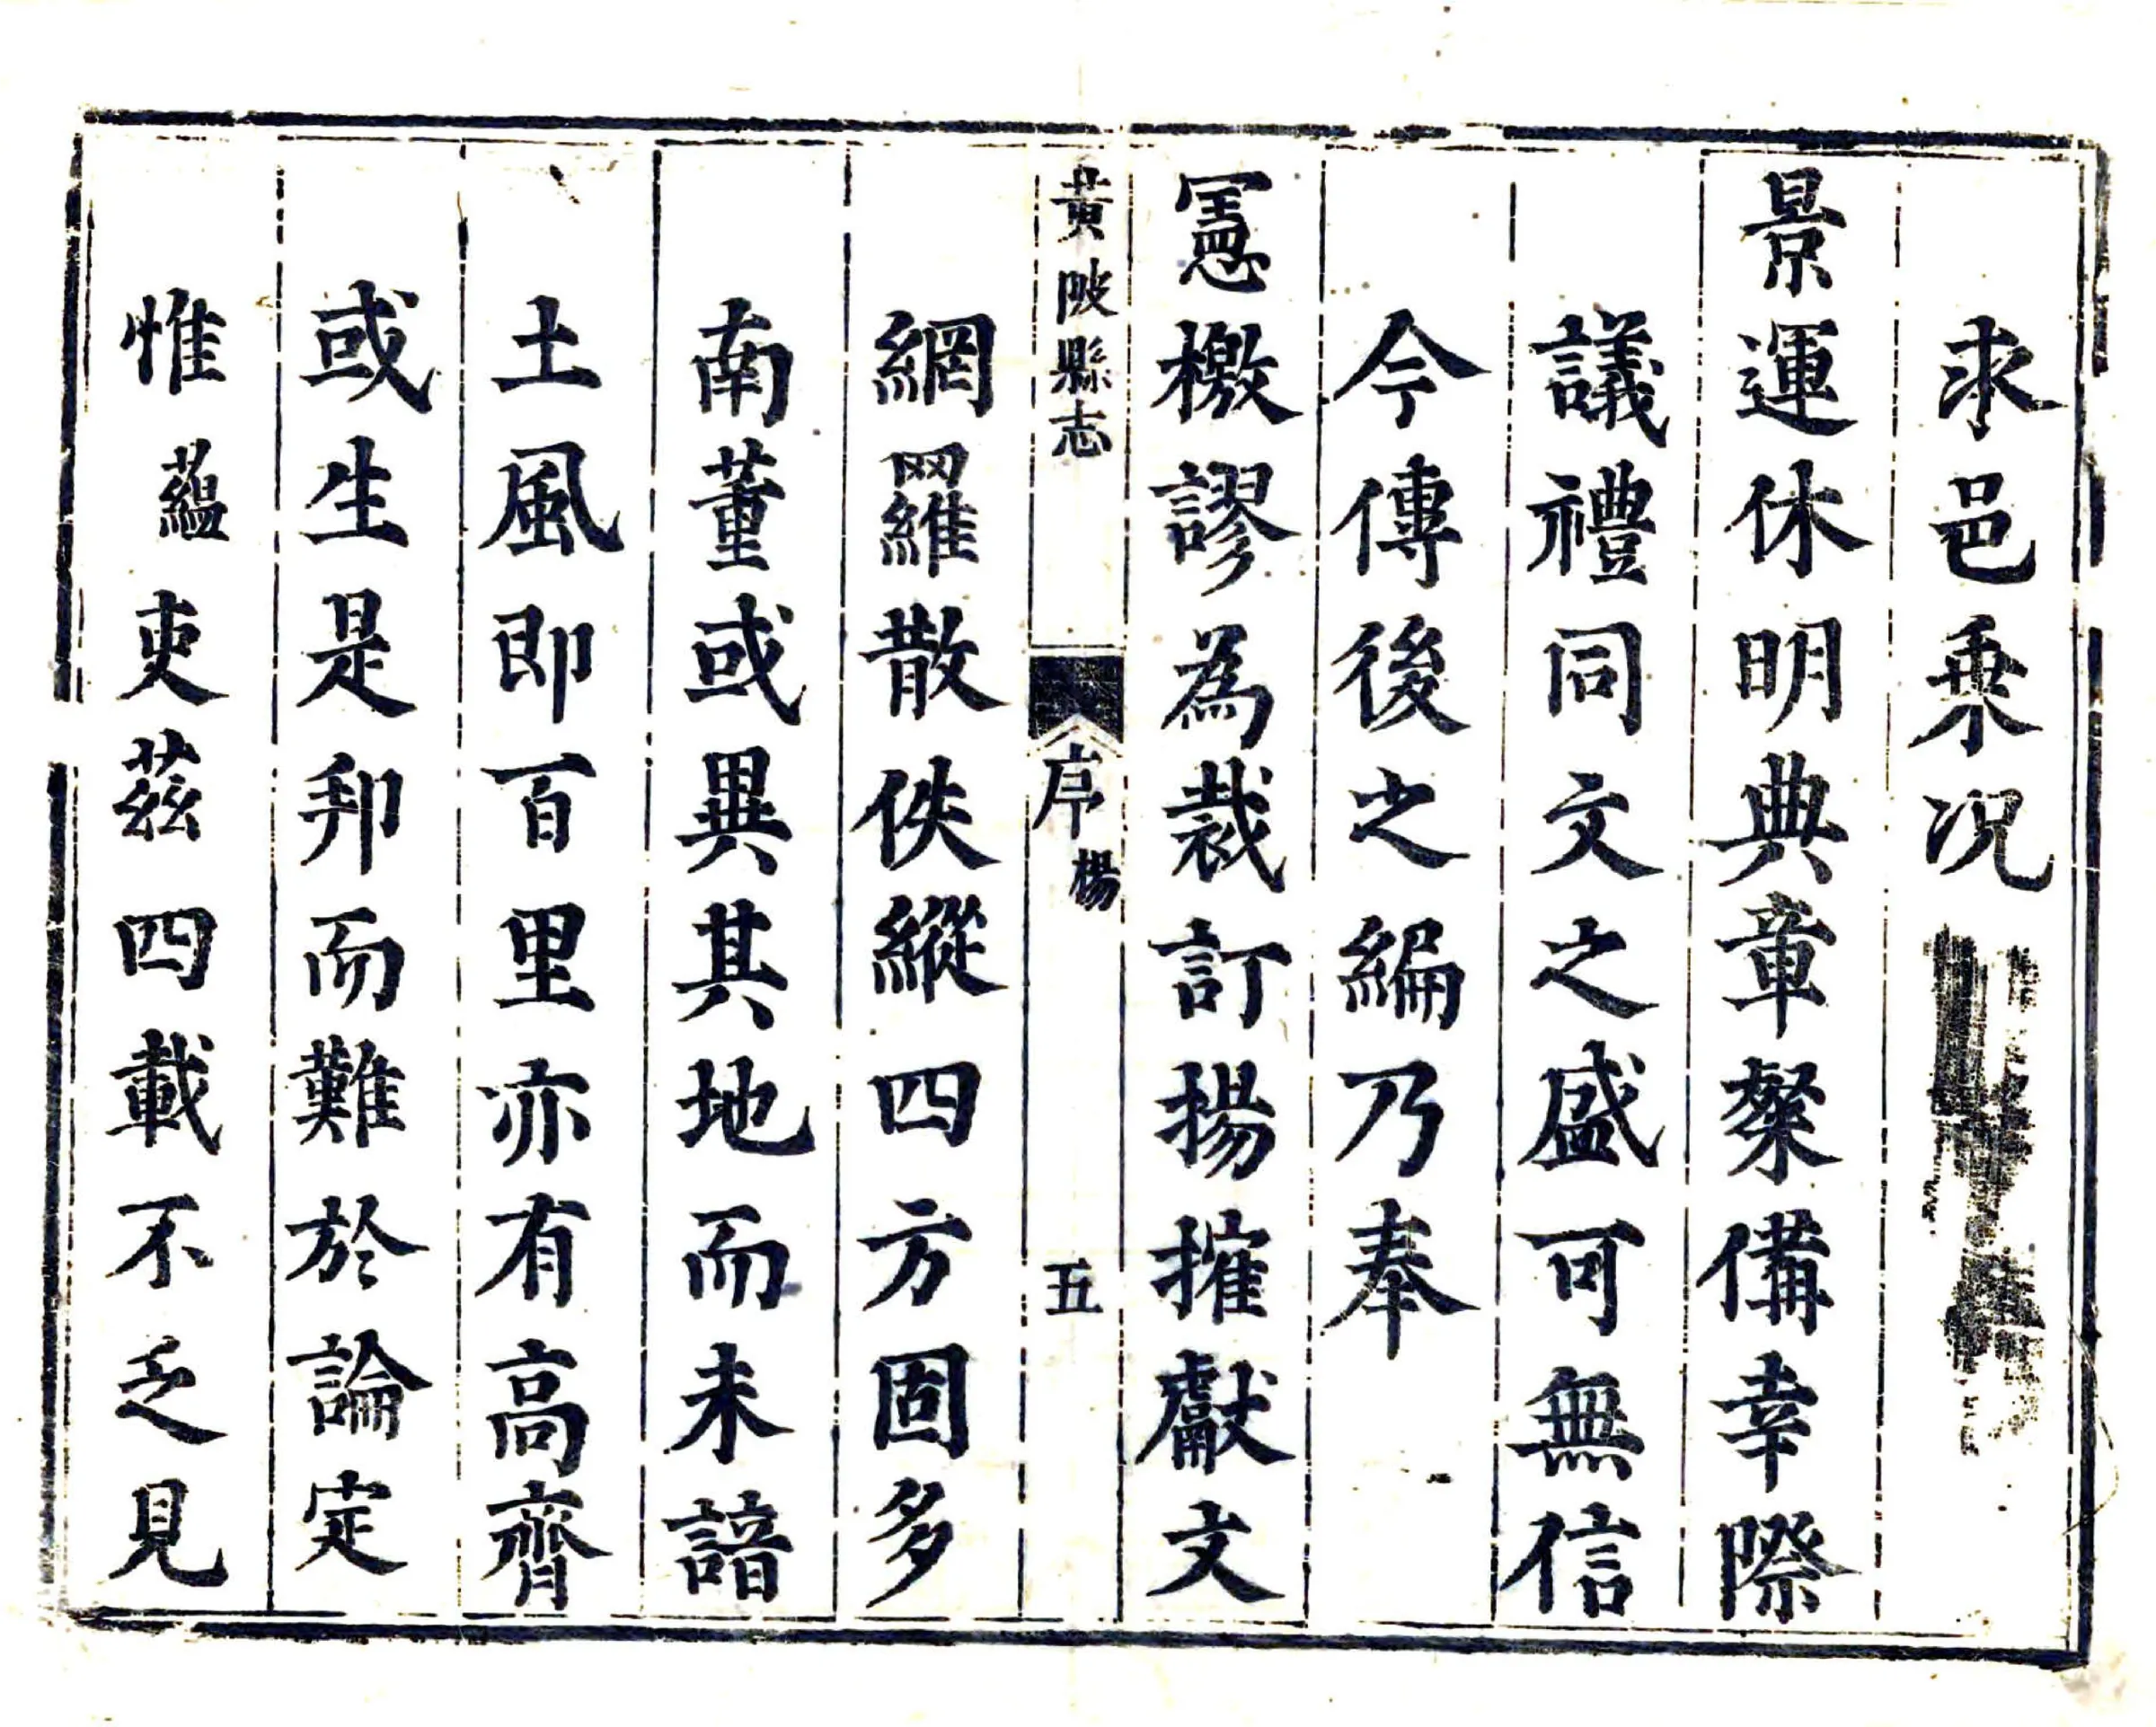 求邑乘況
景運休明典章粲備幸際
議禮同文之盛可無信
今傳後之編乃奉
憲檄謬為裁訂揚搉獻文
黃陂縣志 序 楊 五
網羅散佚縱四方固多
南董或異其地而未諳
土風即百里亦有高齊
或生是邦而難於論定
惟蘊吏茲四載不乏見